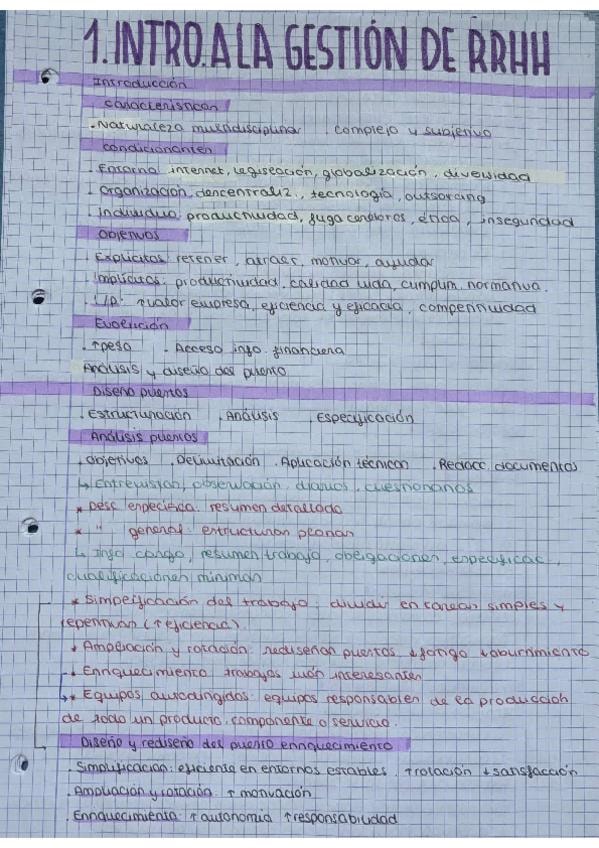 1. INTRO. A LA GESTIÓN DE RRHH
Introducción
características
. Naturaleza multidisciplinar . complejo y subjetivo
condicionantes
. Entorno: internet, legislación, globalización, diversidad
. Organización: descentraliz., tecnología, outsorcing
. Individuo: productividad, fuga cerebros, ética, inseguridad
Objetivos
. Explícitos: retener, atraer, motivar, ayudar
. Implícitos: productividad, calidad vida, cumplim. normativa.
. L/P: ↑valor empresa, eficiencia y eficacia, competitividad
Evolución
. ↑peso . Acceso info. financiera
Análisis y diseño del puesto
Diseño puestos
. Estructuración . Análisis . Especificación
Análisis puestos
. Objetivos . Delimitación . Aplicación técnicas . Redacc. documentos
↳ Entrevistas, observación, diarios, cuestionarios
* Desc. específica: resumen detallado
* " general: estructuras planas
↳ Info cargo, resumen trabajo, obligaciones, especificac.,
cualificaciones mínimas
* Simplificación del trabajo: dividir en tareas simples y
repetitivas (↑eficiencia).
* Ampliación y rotación: rediseñar puestos ↓fatiga ↓aburrimiento
* Enriquecimiento: trabajos más interesantes
* Equipos autodirigidos: equipos responsables de la producción
de todo un producto, componente o servicio.
Diseño y rediseño del puesto enriquecimiento
. Simplificación: eficiente en entornos estables. ↑rotación ↓satisfacción
. Ampliación y rotación: ↑ motivación
. Enriquecimiento: ↑autonomía ↑responsabilidad